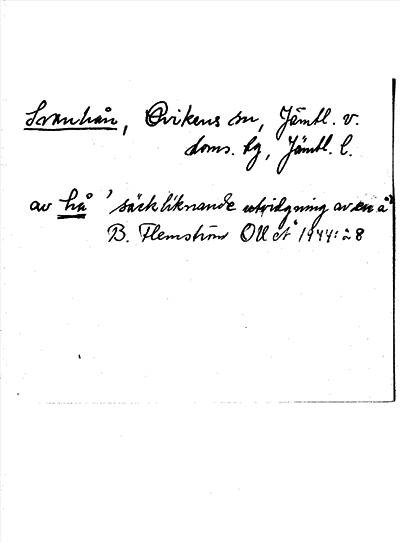 Svanhån, Ovikens sn, Jämtl. v.
doms. hg, Jämtl. l.
av hå 'säckliknande utvidgning av en å'
B. Flemström OUÅ 1944: s 8